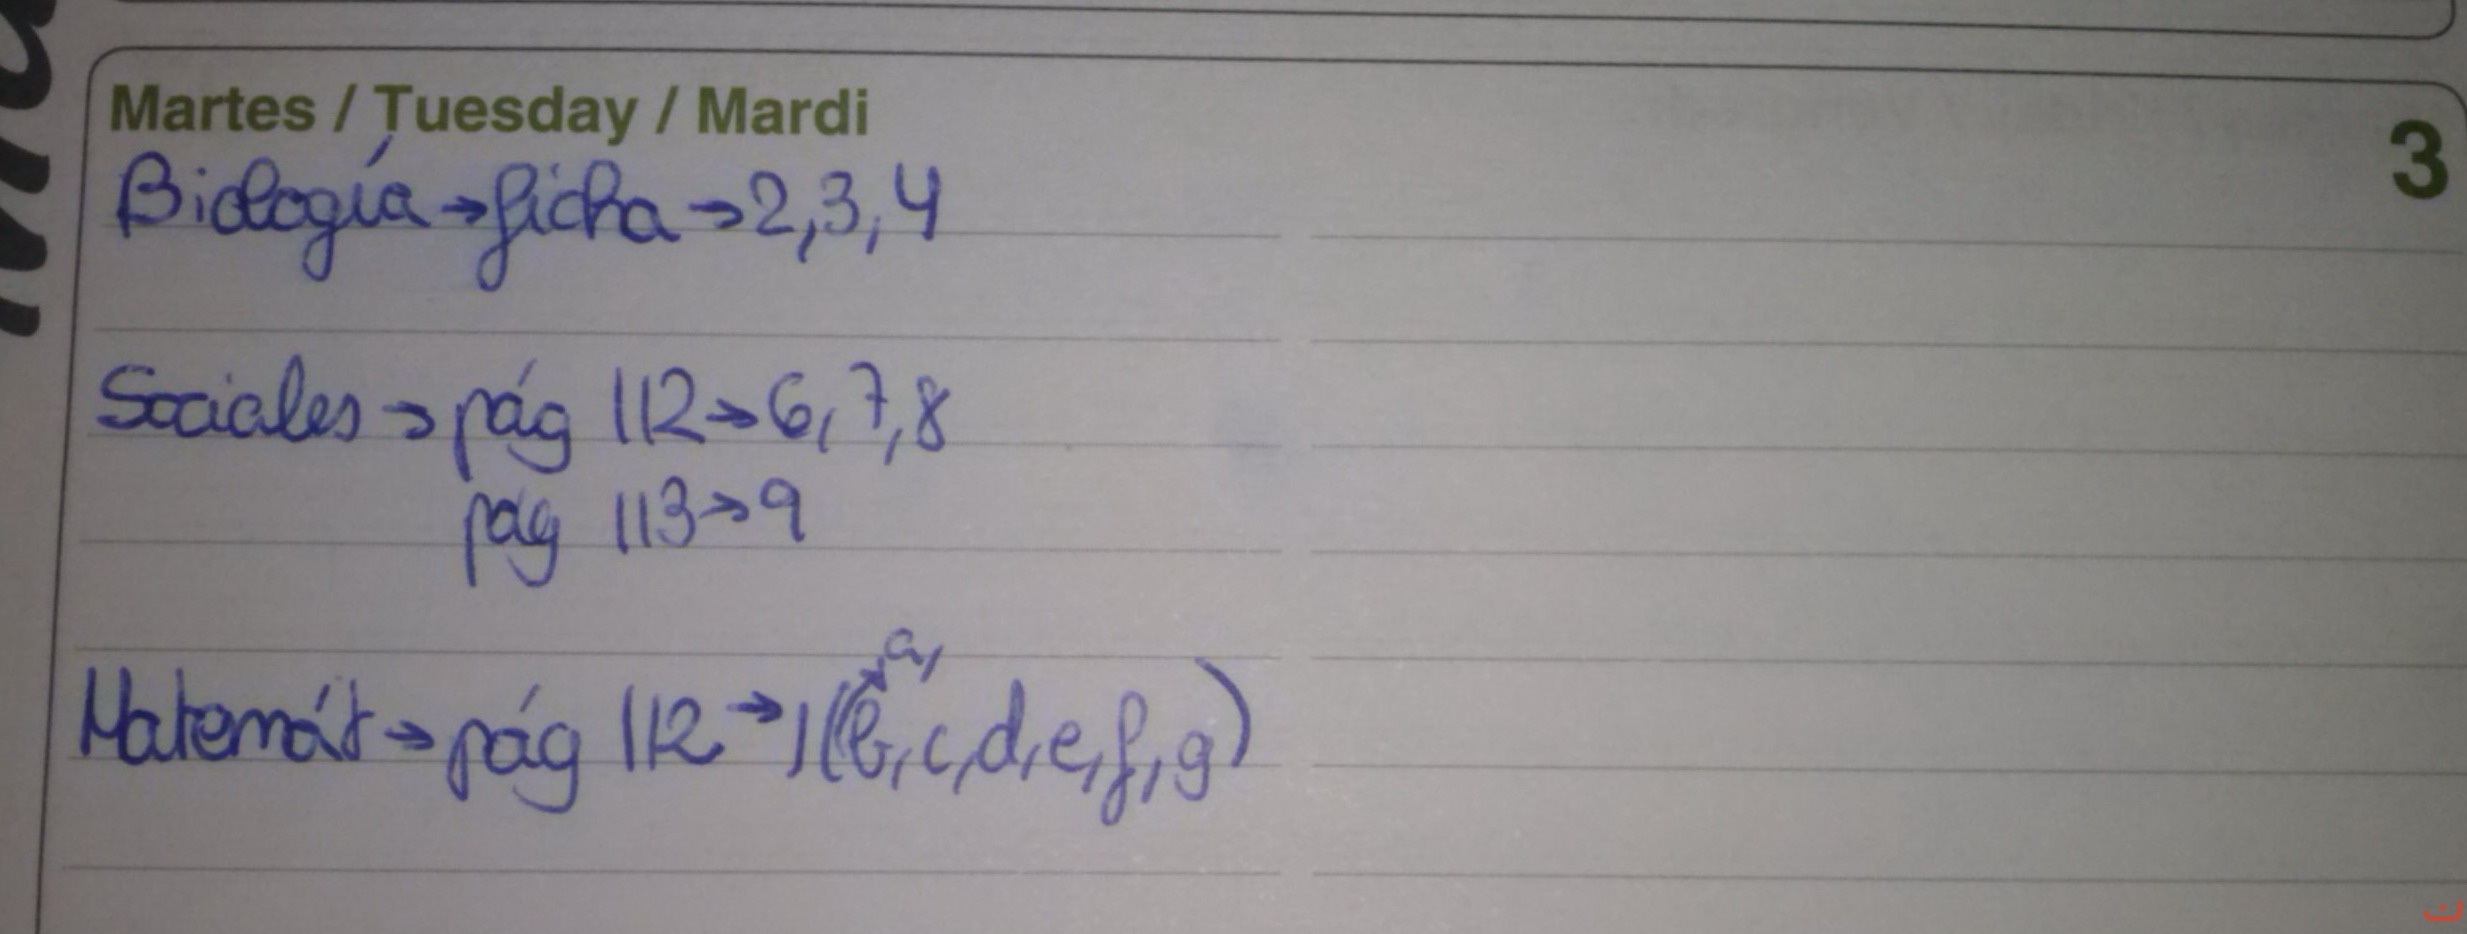 Martes / Tuesday / Mardi
3
Biología → ficha → 2, 3, 4
Sociales → pág 112 → 6, 7, 8
pág 113 → 9
a,
Matemát → pág 112 → 1 (b, c, d, e, f, g)